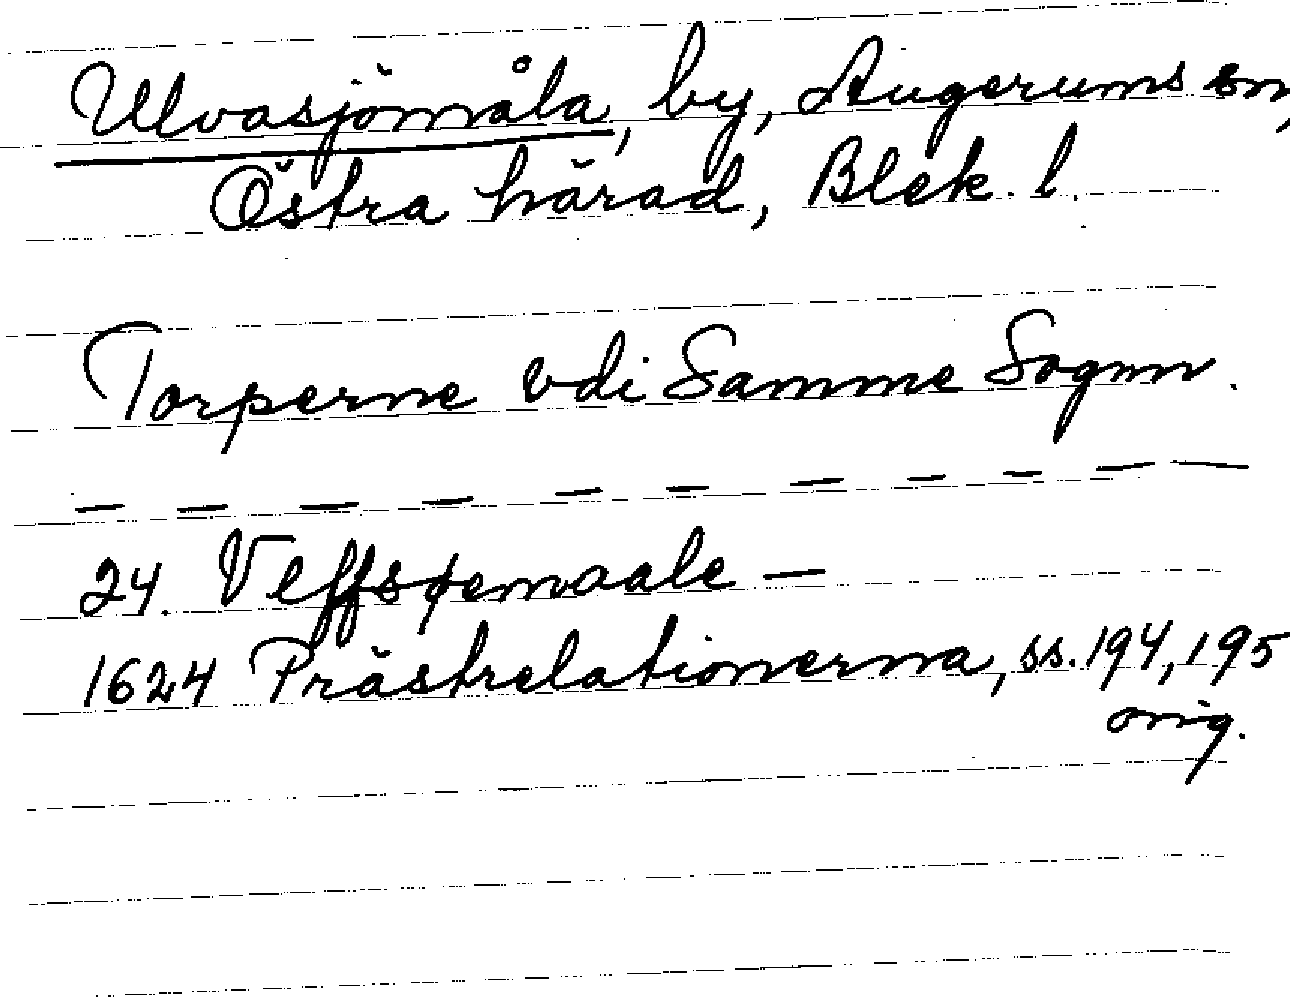 Ulvasjömåla, by, Augerums sn,
Östra härad, Blek. l.
Torperne vdi Samme Sognn.
— — — — — — — — — — —
24. Vlffsøemaale —
1624 Prästrelationerna, ss. 194, 195
orig.